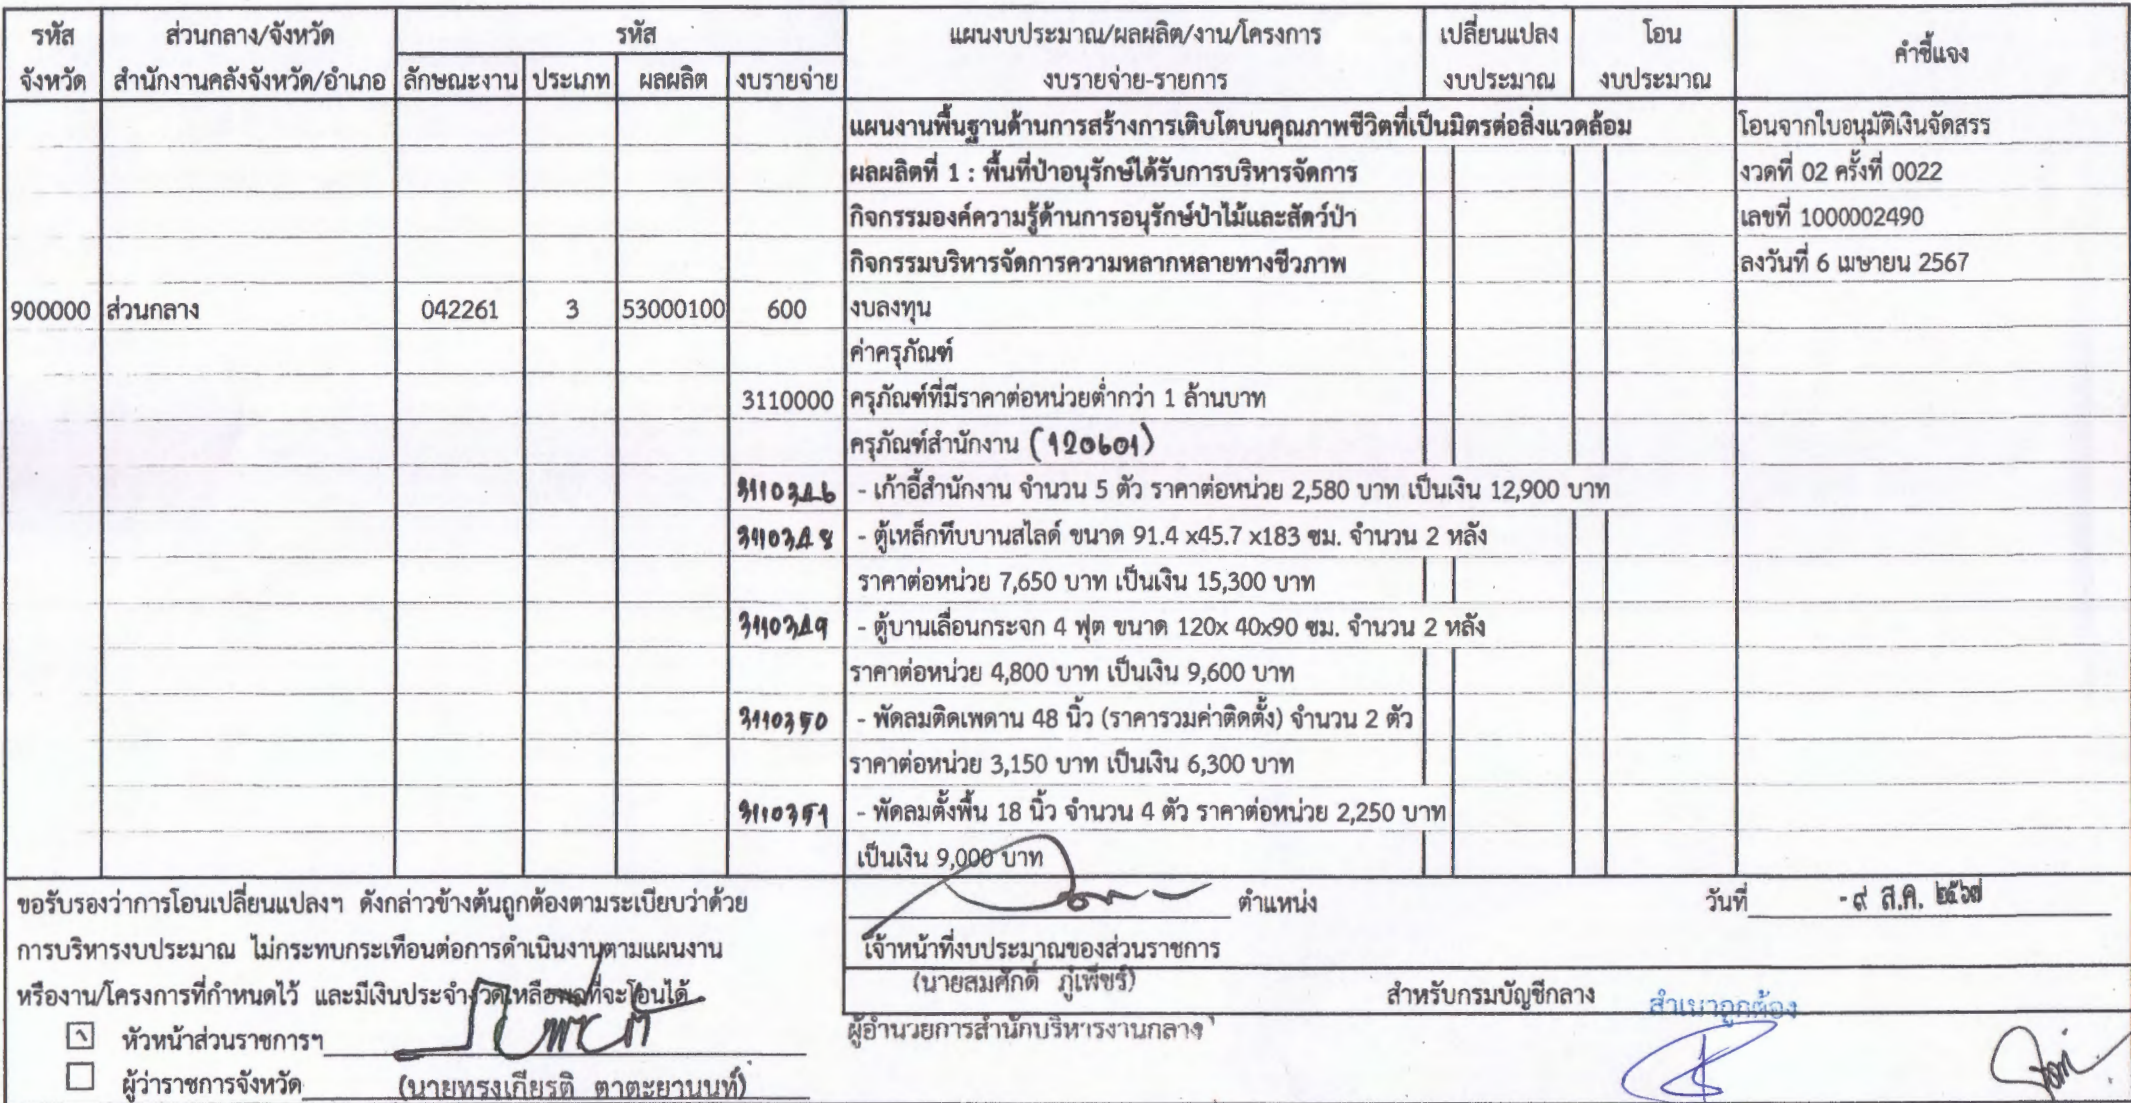 รหัส ส่วนกลาง/จังหวัด รหัส แผนงบประมาณ/ผลผลิต/งาน/โครงการ เปลี่ยนแปลง โอน คำชี้แจง
จังหวัด สำนักงานคลังจังหวัด/อำเภอ ลักษณะงาน ประเภท ผลผลิต งบรายจ่าย งบรายจ่าย-รายการ งบประมาณ งบประมาณ
แผนงานพื้นฐานด้านการสร้างการเติบโตบนคุณภาพชีวิตที่เป็นมิตรต่อสิ่งแวดล้อม โอนจากใบอนุมัติเงินจัดสรร
ผลผลิตที่ 1 : พื้นที่ป่าอนุรักษ์ได้รับการบริหารจัดการ งวดที่ 02 ครั้งที่ 0022
กิจกรรมองค์ความรู้ด้านการอนุรักษ์ป่าไม้และสัตว์ป่า เลขที่ 1000002490
กิจกรรมบริหารจัดการความหลากหลายทางชีวภาพ ลงวันที่ 6 เมษายน 2567
900000 ส่วนกลาง 042261 3 53000100 600 งบลงทุน
ค่าครุภัณฑ์
3110000 ครุภัณฑ์ที่มีราคาต่อหน่วยต่ำกว่า 1 ล้านบาท
ครุภัณฑ์สำนักงาน (120601)
3110346 - เก้าอี้สำนักงาน จำนวน 5 ตัว ราคาต่อหน่วย 2,580 บาท เป็นเงิน 12,900 บาท
3110348 - ตู้เหล็กทึบบานสไลด์ ขนาด 91.4 x45.7 x183 ซม. จำนวน 2 หลัง
ราคาต่อหน่วย 7,650 บาท เป็นเงิน 15,300 บาท
3110349 - ตู้บานเลื่อนกระจก 4 ฟุต ขนาด 120x 40x90 ซม. จำนวน 2 หลัง
ราคาต่อหน่วย 4,800 บาท เป็นเงิน 9,600 บาท
3110350 - พัดลมติดเพดาน 48 นิ้ว (ราคารวมค่าติดตั้ง) จำนวน 2 ตัว
ราคาต่อหน่วย 3,150 บาท เป็นเงิน 6,300 บาท
3110351 - พัดลมตั้งพื้น 18 นิ้ว จำนวน 4 ตัว ราคาต่อหน่วย 2,250 บาท
เป็นเงิน 9,000 บาท
ขอรับรองว่าการโอนเปลี่ยนแปลงฯ ดังกล่าวข้างต้นถูกต้องตามระเบียบว่าด้วย
การบริหารงบประมาณ ไม่กระทบกระเทือนต่อการดำเนินงานตามแผนงาน
หรืองาน/โครงการที่กำหนดไว้ และมีเงินประจำงวดเหลือพอที่จะโอนได้
หัวหน้าส่วนราชการฯ
ผู้ว่าราชการจังหวัด (นายทรงเกียรติ ตาตะยานนท์)
ตำแหน่ง วันที่ - ๙ ส.ค. ๒๕๖๗
เจ้าหน้าที่งบประมาณของส่วนราชการ
(นายสมศักดิ์ ภู่เพ็ชร์)
ผู้อำนวยการสำนักบริหารงานกลาง
สำหรับกรมบัญชีกลาง
สำเนาถูกต้อง